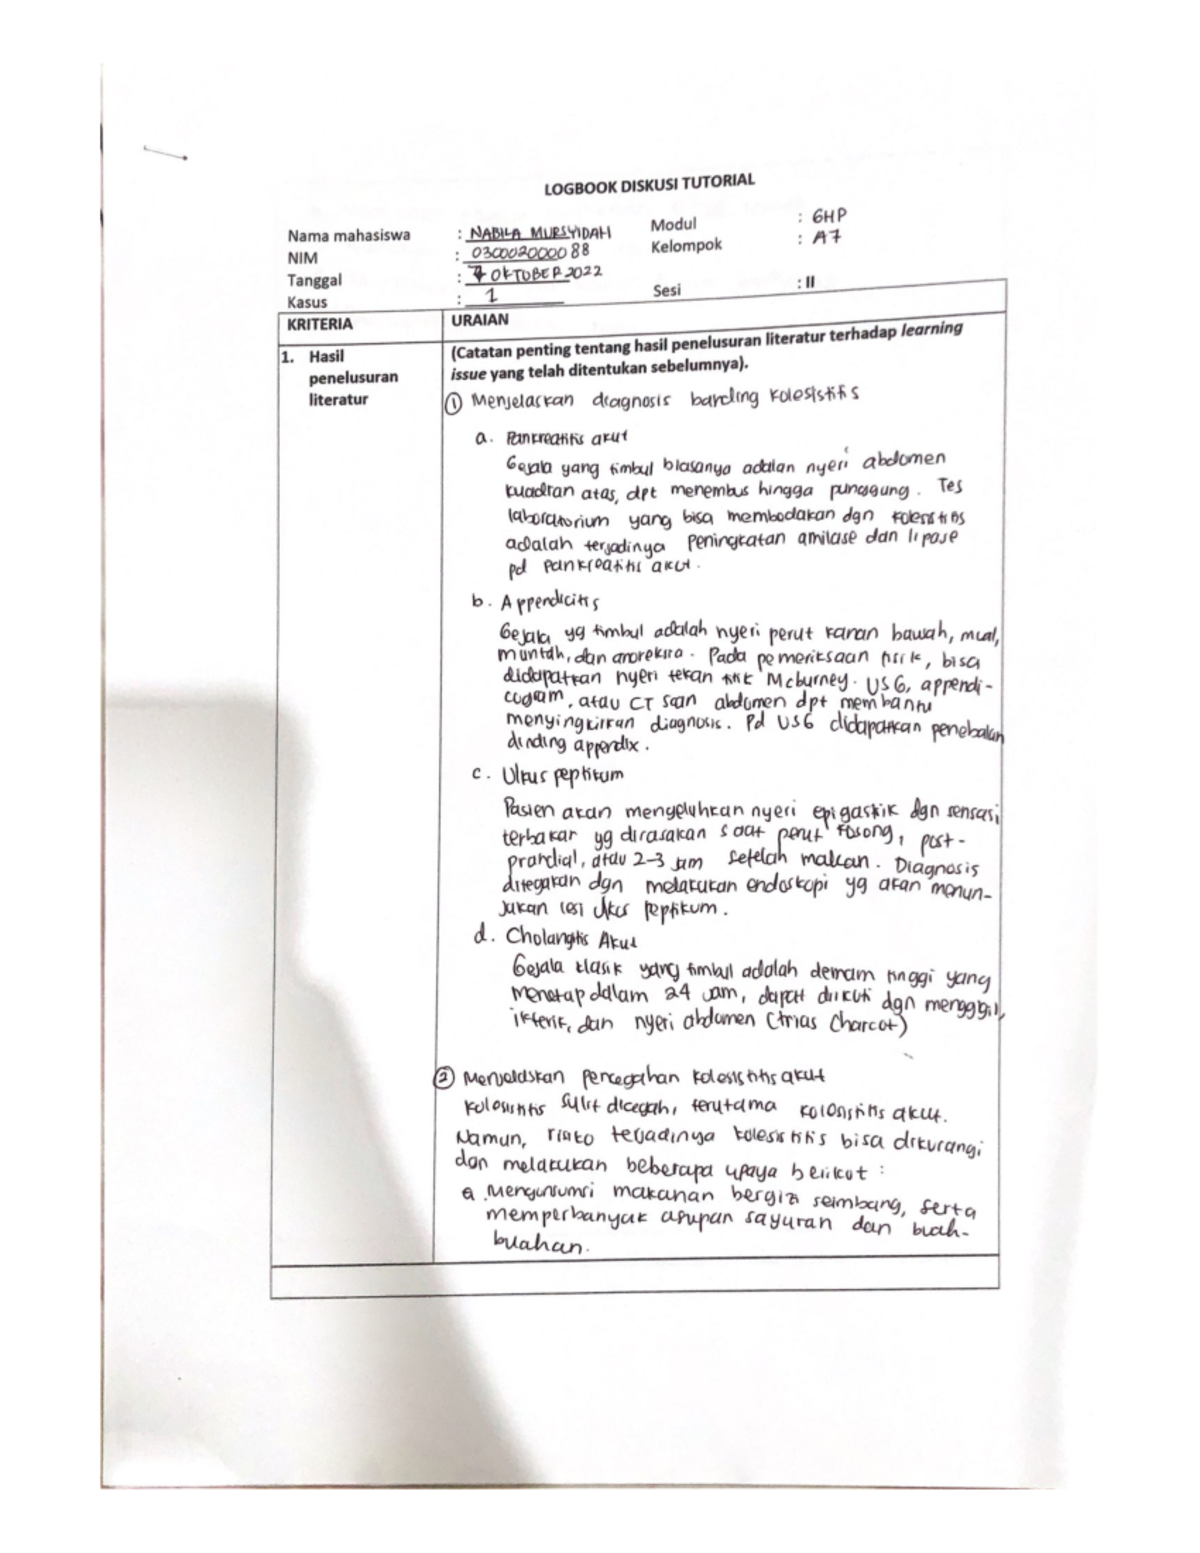 LOGBOOK DISKUSI TUTORIAL
Nama mahasiswa : NABILA MURSYIDAH Modul : GHP
NIM : 03000200088 Kelompok : A7
Tanggal : 7 OKTOBER 2022
Kasus : 1 Sesi : II
KRITERIA URAIAN
1. Hasil penelusuran literatur
(Catatan penting tentang hasil penelusuran literatur terhadap learning
issue yang telah ditentukan sebelumnya).
① Menjelaskan diagnosis banding kolesistitis
a. Pankreatitis akut
Gejala yang timbul biasanya adalah nyeri abdomen
kuadran atas, dpt menembus hingga punggung. Tes
laboratorium yang bisa membedakan dgn kolesistitis
adalah terjadinya peningkatan amilase dan lipase
pd pankreatitis akut.
b. Appendicitis
Gejala yg timbul adalah nyeri perut kanan bawah, mual,
muntah, dan anoreksia. Pada pemeriksaan fisik, bisa
didapatkan nyeri tekan titik Mcburney. USG, appendi-
cogram, atau CT scan abdomen dpt membantu
menyingkirkan diagnosis. Pd USG didapatkan penebalan
dinding appendix.
c. Ulkus peptikum
Pasien akan mengeluhkan nyeri epigastrik dgn sensasi
terbakar yg dirasakan saat perut kosong, post-
prandial, atau 2-3 jam setelah makan. Diagnosis
ditegakan dgn melakukan endoskopi yg akan menun-
jukan lesi ulkus peptikum.
d. Cholangitis Akut
Gejala klasik yang timbul adalah demam tinggi yang
menetap dalam 24 jam, dapat diikuti dgn menggigil,
ikterik, dan nyeri abdomen (trias Charcot)
② Menjelaskan pencegahan kolesistitis akut
Kolesistitis sulit dicegah, terutama kolesistitis akut.
Namun, risiko terjadinya kolesistitis bisa dikurangi
dgn melakukan beberapa upaya berikut :
a. Mengonsumsi makanan bergizi seimbang, serta
memperbanyak asupan sayuran dan buah-
buahan.